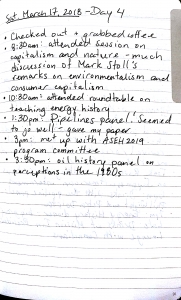 Sat March 17, 2018 - Day 4
• Checked out + grabbed coffee
• 8:30am: attended session on
capitalism and nature - much
discussion of Mark Stoll's
remarks on environmentalism and
consumer capitalism
• 10:30am: attended roundtable on
teaching energy history
• 1:30pm: Pipelines panel! Seemed
to go well - gave my paper
• 3pm: met up with ASEH 2019
program committee
• 3:30pm: oil history panel on
perceptions in the 1980s